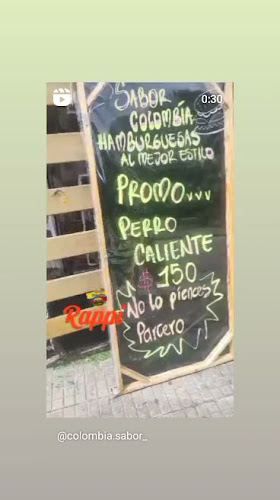 0:30
SABOR
COLOMBÍA
HAMBURGUESAS
AL MEJOR ESTILO
PROMO
PERRO
CALIENTE
$ 150
No lo pienCes
Parcero
Rappi
@colombia.sabor_